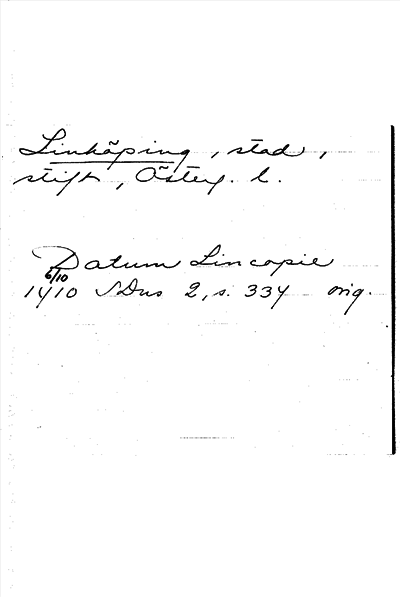 Linköping, stad,
stift, Österg. l.
Datum Lincopie
6/10
1410 SDns 2, s. 334 orig.